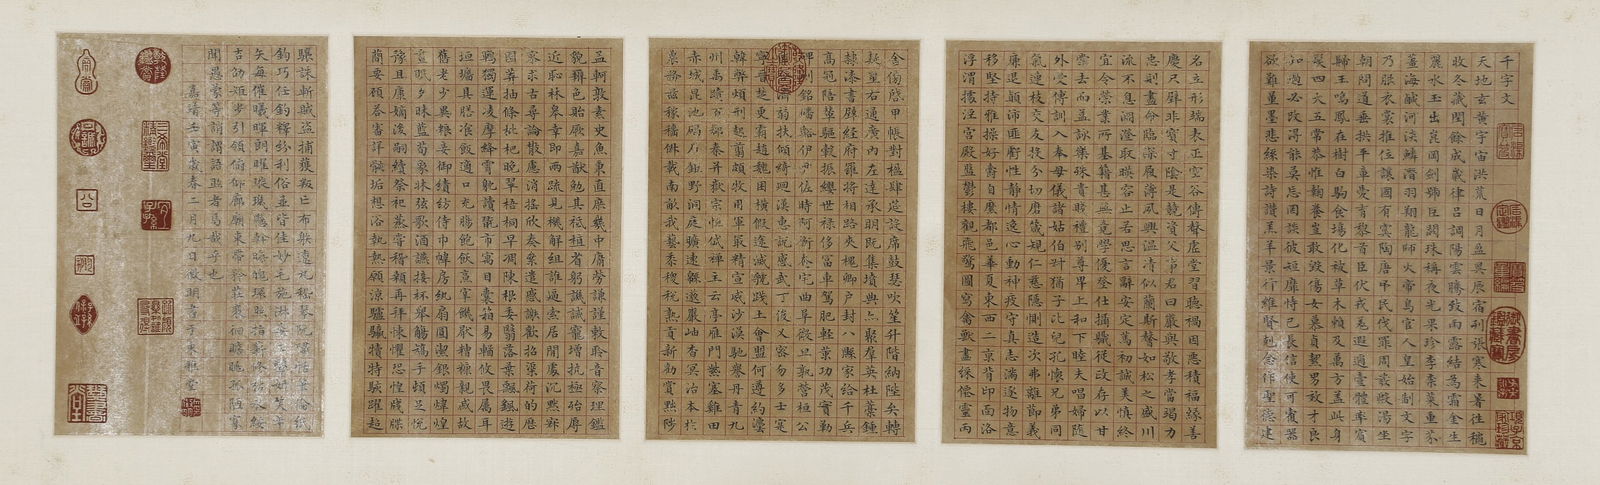 千字文
天地玄黃宇宙洪荒日月盈昃辰宿列張寒來暑往穐
收冬藏閏餘成歲律呂調陽雲騰致雨露結為霜金生
麗水玉出崑岡劍號巨闕珠稱夜光果珍李柰菜重芥
薑海鹹河淡鱗潛羽翔龍師火帝鳥官人皇始制文字
乃服衣裳推位讓國有虞陶唐弔民伐罪周發殷湯坐
朝問道垂拱平章愛育黎首臣伏戎羌遐邇壹體率賓
歸王鳴鳳在樹白駒食場化被草木賴及萬方蓋此身
髮四大五常恭惟鞠養豈敢毀傷女慕貞絜男效才良
知過必改得能莫忘罔談彼短靡恃己長信使可覆器
欲難量墨悲絲染詩讚羔羊景行維賢剋念作聖德建
名立形端表正空谷傳聲虛堂習聽禍因惡積福緣善
慶尺璧非寶寸陰是競資父事君曰嚴與敬孝當竭力
忠則盡命臨深履薄夙興溫凊似蘭斯馨如松之盛川
流不息淵澄取暎容止若思言辭安定篤初誠美慎終
宜令榮業所基籍甚無竟學優登仕攝職從政存以甘
棠去而益詠樂殊貴賤禮別尊卑上和下睦夫唱婦隨
外受傅訓入奉母儀諸姑伯叔猶子比兒孔懷兄弟同
氣連枝交友投分切磨箴規仁慈隱惻造次弗離節義
廉退顛沛匪虧性靜情逸心動神疲守真志滿逐物意
移堅持雅操好爵自縻都邑華夏東西二京背邙面洛
浮渭據涇宮殿盤鬱樓觀飛驚圖寫禽獸畫綵僊靈丙
舍傍啓甲帳對楹肆筵設席鼓瑟吹笙升階納陛弁轉
疑星右通廣內左達承明既集墳典亦聚群英杜稾鍾
隸漆書壁經府羅將相路俠槐卿戶封八縣家給千兵
高冠陪輦驅轂振纓世祿侈富車駕肥輕策功茂實勒
碑銘磻谿伊尹佐時阿衡奄宅曲阜微旦孰營桓公
匡合濟弱扶傾綺迴漢惠說感武丁俊乂密勿多士寔
寧晉楚更霸趙魏困橫假途滅虢踐土會盟何遵約法
韓弊煩刑起翦頗牧用軍最精宣威沙漠馳譽丹青九
州禹蹟百郡秦并嶽宗恒岱禪主云亭雁門紫塞雞田
赤城昆池碣石鉅野洞庭曠遠緜邈巖岫杳冥治本於
農務茲稼穡俶載南畝我藝黍稷稅熟貢新勸賞黜陟
孟軻敦素史魚秉直庶幾中庸勞謙謹敕聆音察理鑑
貌辨色貽厥嘉猷勉其祗植省躬譏誡寵增抗極殆辱
近恥林皋幸即兩疏見機解組誰逼索居閒處沉默寂
寥求古尋論散慮消搖欣奏累遣慼謝歡招渠荷的歷
園莽抽條枇杷晚翠梧桐早凋陳根委翳落葉飄颻遊
鵾獨運凌摩絳霄耽讀翫市寓目囊箱易輶攸畏屬耳
垣牆具膳飡飯適口充腸飽飫烹宰饑厭糟糠親戚故
舊老少異糧妾御績紡侍巾帷房紈扇圓潔銀燭煒煌
晝眠夕寐藍筍象牀弦歌酒讌接杯舉觴矯手頓足悅
豫且康嫡後嗣續祭祀蒸嘗稽顙再拜悚懼恐惶牋牒
簡要顧答審詳骸垢想浴執熱願涼驢騾犢特駭躍超
驤誅斬賊盜捕獲叛亡布射遼丸嵇琴阮嘯恬筆倫紙
鈞巧任釣釋紛利俗並皆佳妙毛施淑姿工顰妍笑年
矢每催曦暉朗曜璇璣懸斡晦魄環照指薪修祜永綏
吉劭矩步引領俯仰廊廟束帶矜莊裴徊瞻眺孤陋寡
聞愚蒙等誚謂語助者焉哉乎也
嘉靖壬寅歲春二月九日徵明書于東雅堂